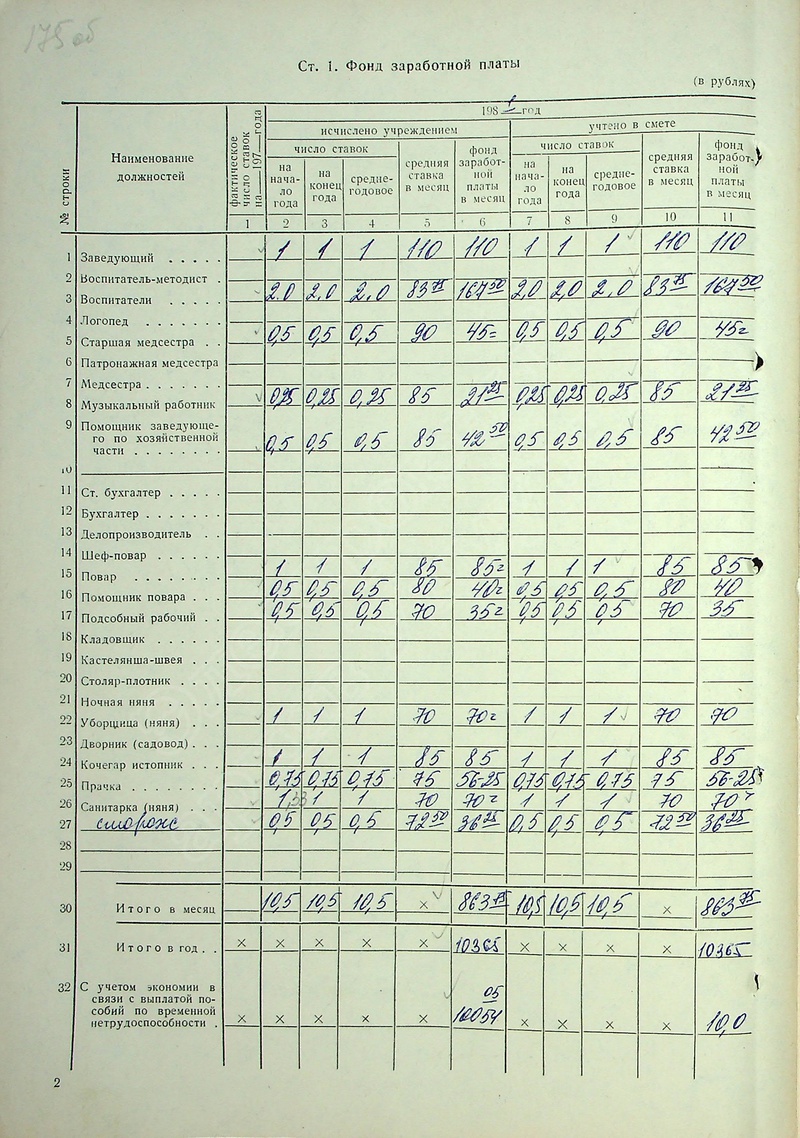 175 об
Ст. 1. Фонд заработной платы
(в рублях)
№ строки
Наименование должностей
фактическое число ставок на — 197— года
1981 год
исчислено учреждением
учтено в смете
число ставок
средняя ставка в месяц
фонд заработной платы в месяц
число ставок
средняя ставка в месяц
фонд заработной платы в месяц
на начало года
на конец года
средне-годовое
на начало года
на конец года
средне-годовое
1 2 3 4 5 6 7 8 9 10 11
1 Заведующий . . . . . 1 1 1 110 110 1 1 1 110 110
2 Воспитатель-методист .
3 Воспитатели . . . . . 2,0 2,0 2,0 83 75 167 50 2,0 2,0 2,0 83 75 167 50
4 Логопед . . . . . . .
5 Старшая медсестра . . 0,5 0,5 0,5 90 45= 0,5 0,5 0,5 90 45=
6 Патронажная медсестра
7 Медсестра . . . . . . .
8 Музыкальный работник 0,25 0,25 0,25 85 21 25 0,25 0,25 0,25 85 21 25
9 Помощник заведующе-
го по хозяйственной
части . . . . . . . . 0,5 0,5 0,5 85 42 50 0,5 0,5 0,5 85 42 50
10
11 Ст. бухгалтер . . . . .
12 Бухгалтер . . . . . . .
13 Делопроизводитель . .
14 Шеф-повар . . . . . .
15 Повар . . . . . . . . 1 1 1 85 85= 1 1 1 85 85
16 Помощник повара . . . 0,5 0,5 0,5 80 40= 0,5 0,5 0,5 80 40
17 Подсобный рабочий . . 0,5 0,5 0,5 70 35= 0,5 0,5 0,5 70 35
18 Кладовщик . . . . . .
19 Кастелянша-швея . . .
20 Столяр-плотник . . . .
21 Ночная няня . . . . .
22 Уборщица (няня) . . . 1 1 1 70 70= 1 1 1 70 70
23 Дворник (садовод) . . .
24 Кочегар истопник . . . 1 1 1 85 85 1 1 1 85 85
25 Прачка . . . . . . . . 0,75 0,75 0,75 75 56-25 0,75 0,75 0,75 75 56-25
26 Санитарка (няня) . . . 1 1 1 70 70= 1 1 1 70 70=
27 сторож 0,5 0,5 0,5 72 50 36 25 0,5 0,5 0,5 72 50 36 25
28
29
30 Итого в месяц 10,5 10,5 10,5 × 863 75 10,5 10,5 10,5 × 863 75
31 Итого в год . . × × × × × 10365 × × × × 10365
32 С учетом экономии в
связи с выплатой по-
собий по временной
нетрудоспособности . × × × × × 05 10054 × × × × 10,0
2